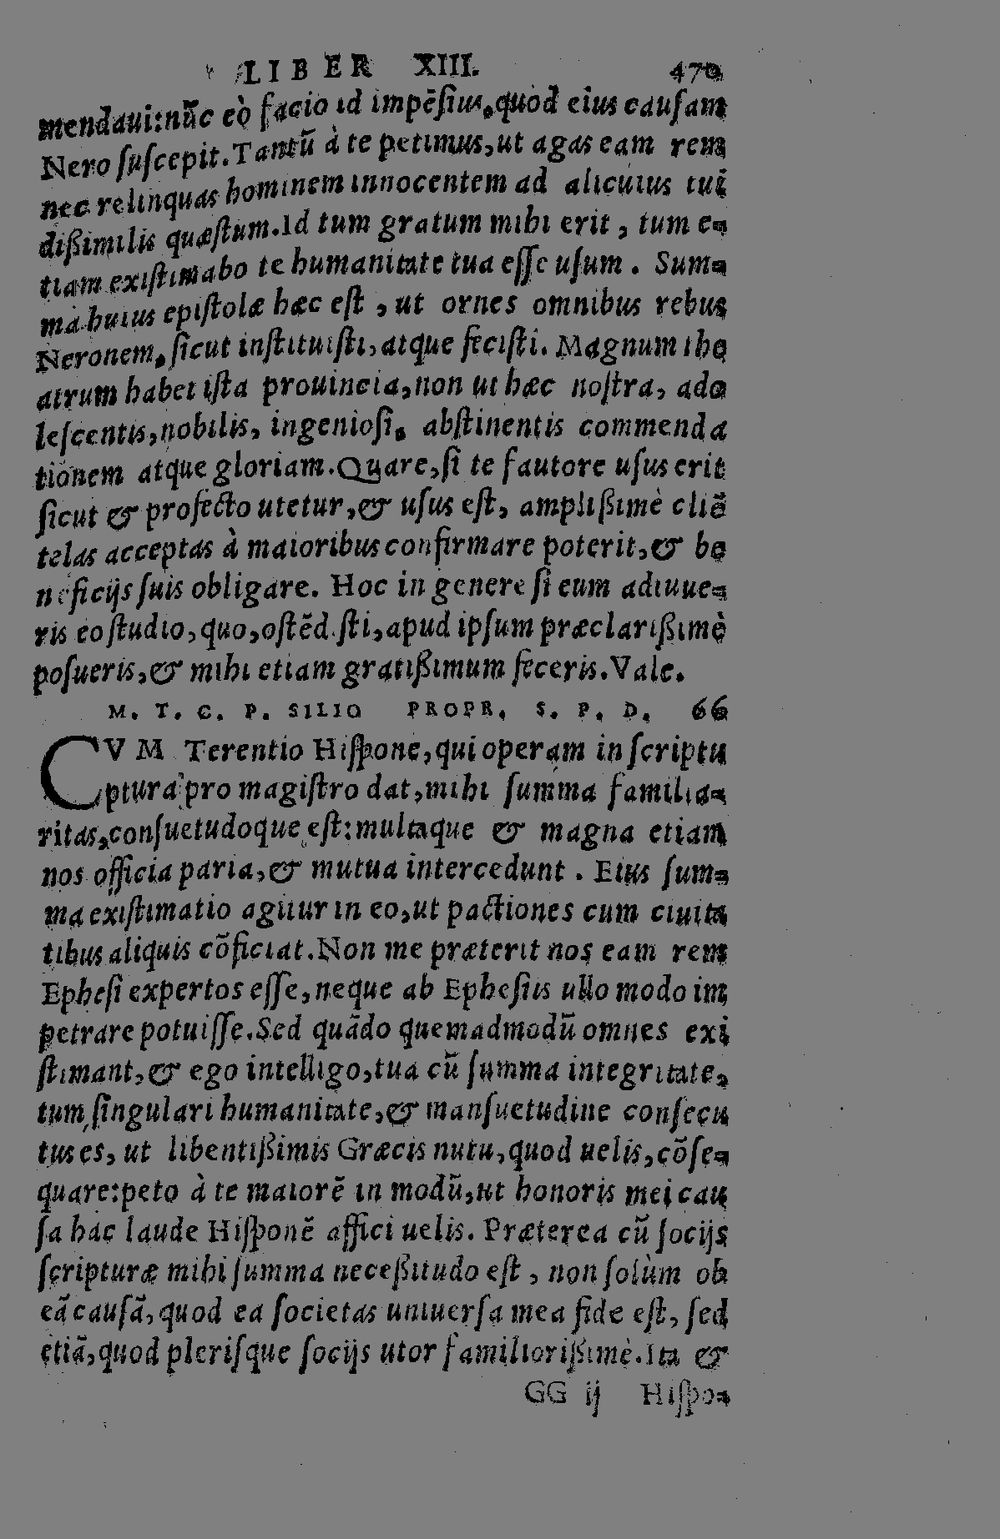 LIBER XIII. 470
mendaui:nũc eò facio id impẽſius,quod eius cauſam
Nero ſuſcepit.Tantũ à te petimus,ut agas eam rem
nec relinquas hominem innocentem ad alicuius tui
dißimilis quæſtum.Id tum gratum mihi erit, tum e-
tiam exiſtimabo te humanitate tua eſſe uſum. Sum-
ma huius epiſtolæ hæc eſt, ut ornes omnibus rebus
Neronem, ſicut inſtituiſti, atque feciſti. Magnum the
atrum habet iſta prouincia,non ut hæc noſtra, ado
leſcentis,nobilis, ingenioſi, abſtinentis commenda
tionem atque gloriam.Quare,ſi te fautore uſus erit
ſicut & profecto utetur,& uſus eſt, amplißimè cliẽ
telas acceptas à maioribus confirmare poterit,& be
neficijs ſuis obligare. Hoc in genere ſi eum adiuue-
ris eo ſtudio,quo,oſtẽdiſti,apud ipſum præclarißimè
poſueris,& mihi etiam gratißimum feceris.Vale.
M. T. C. P. SILIO PROPR. S. P. D. 66
CVM Terentio Hiſpone,qui operam in ſcriptu
ptura pro magiſtro dat,mihi ſumma familia-
ritas,conſuetudoque eſt:multaque & magna etiam
nos officia paria,& mutua intercedunt. Eius ſum-
ma exiſtimatio agitur in eo,ut pactiones cum ciuita
tibus aliquis cõficiat.Non me præterit nos eam rem
Epheſi expertos eſſe,neque ab Epheſiis ullo modo im
petrare potuiſſe.Sed quãdo quemadmodũ omnes exi
ſtimant,& ego intelligo,tua cũ ſumma integritate,
tum ſingulari humanitate,& manſuetudine conſecu
tus es, ut libentißimis Græcis nutu,quod uelis,cõſe-
quare:peto à te maiorẽ in modũ,ut honoris mei cau
ſa hac laude Hiſponẽ affici uelis. Præterea cũ ſocijs
ſcripturæ mihi ſumma neceßitudo eſt, non ſolùm ob
eã cauſã,quod ea ſocietas uniuerſa mea fide eſt, ſed
etiã,quod pleriſque ſocijs utor familiarißimè.Ita &
GG ij Hiſpo-